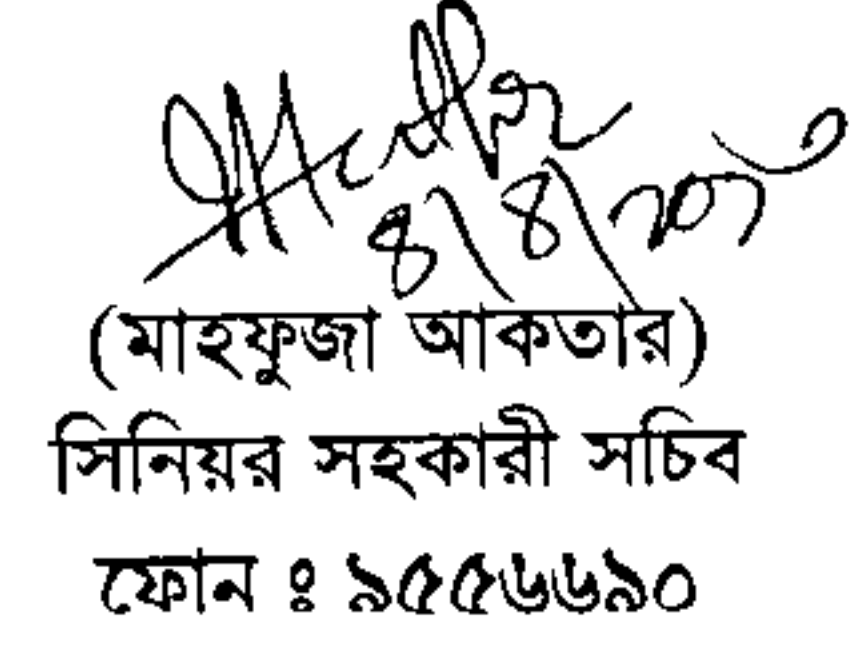 ৪/৪/২০১
(মাহফুজা আকতার)
সিনিয়র সহকারী সচিব
ফোন ঃ ৯৫৫৬৬৯০